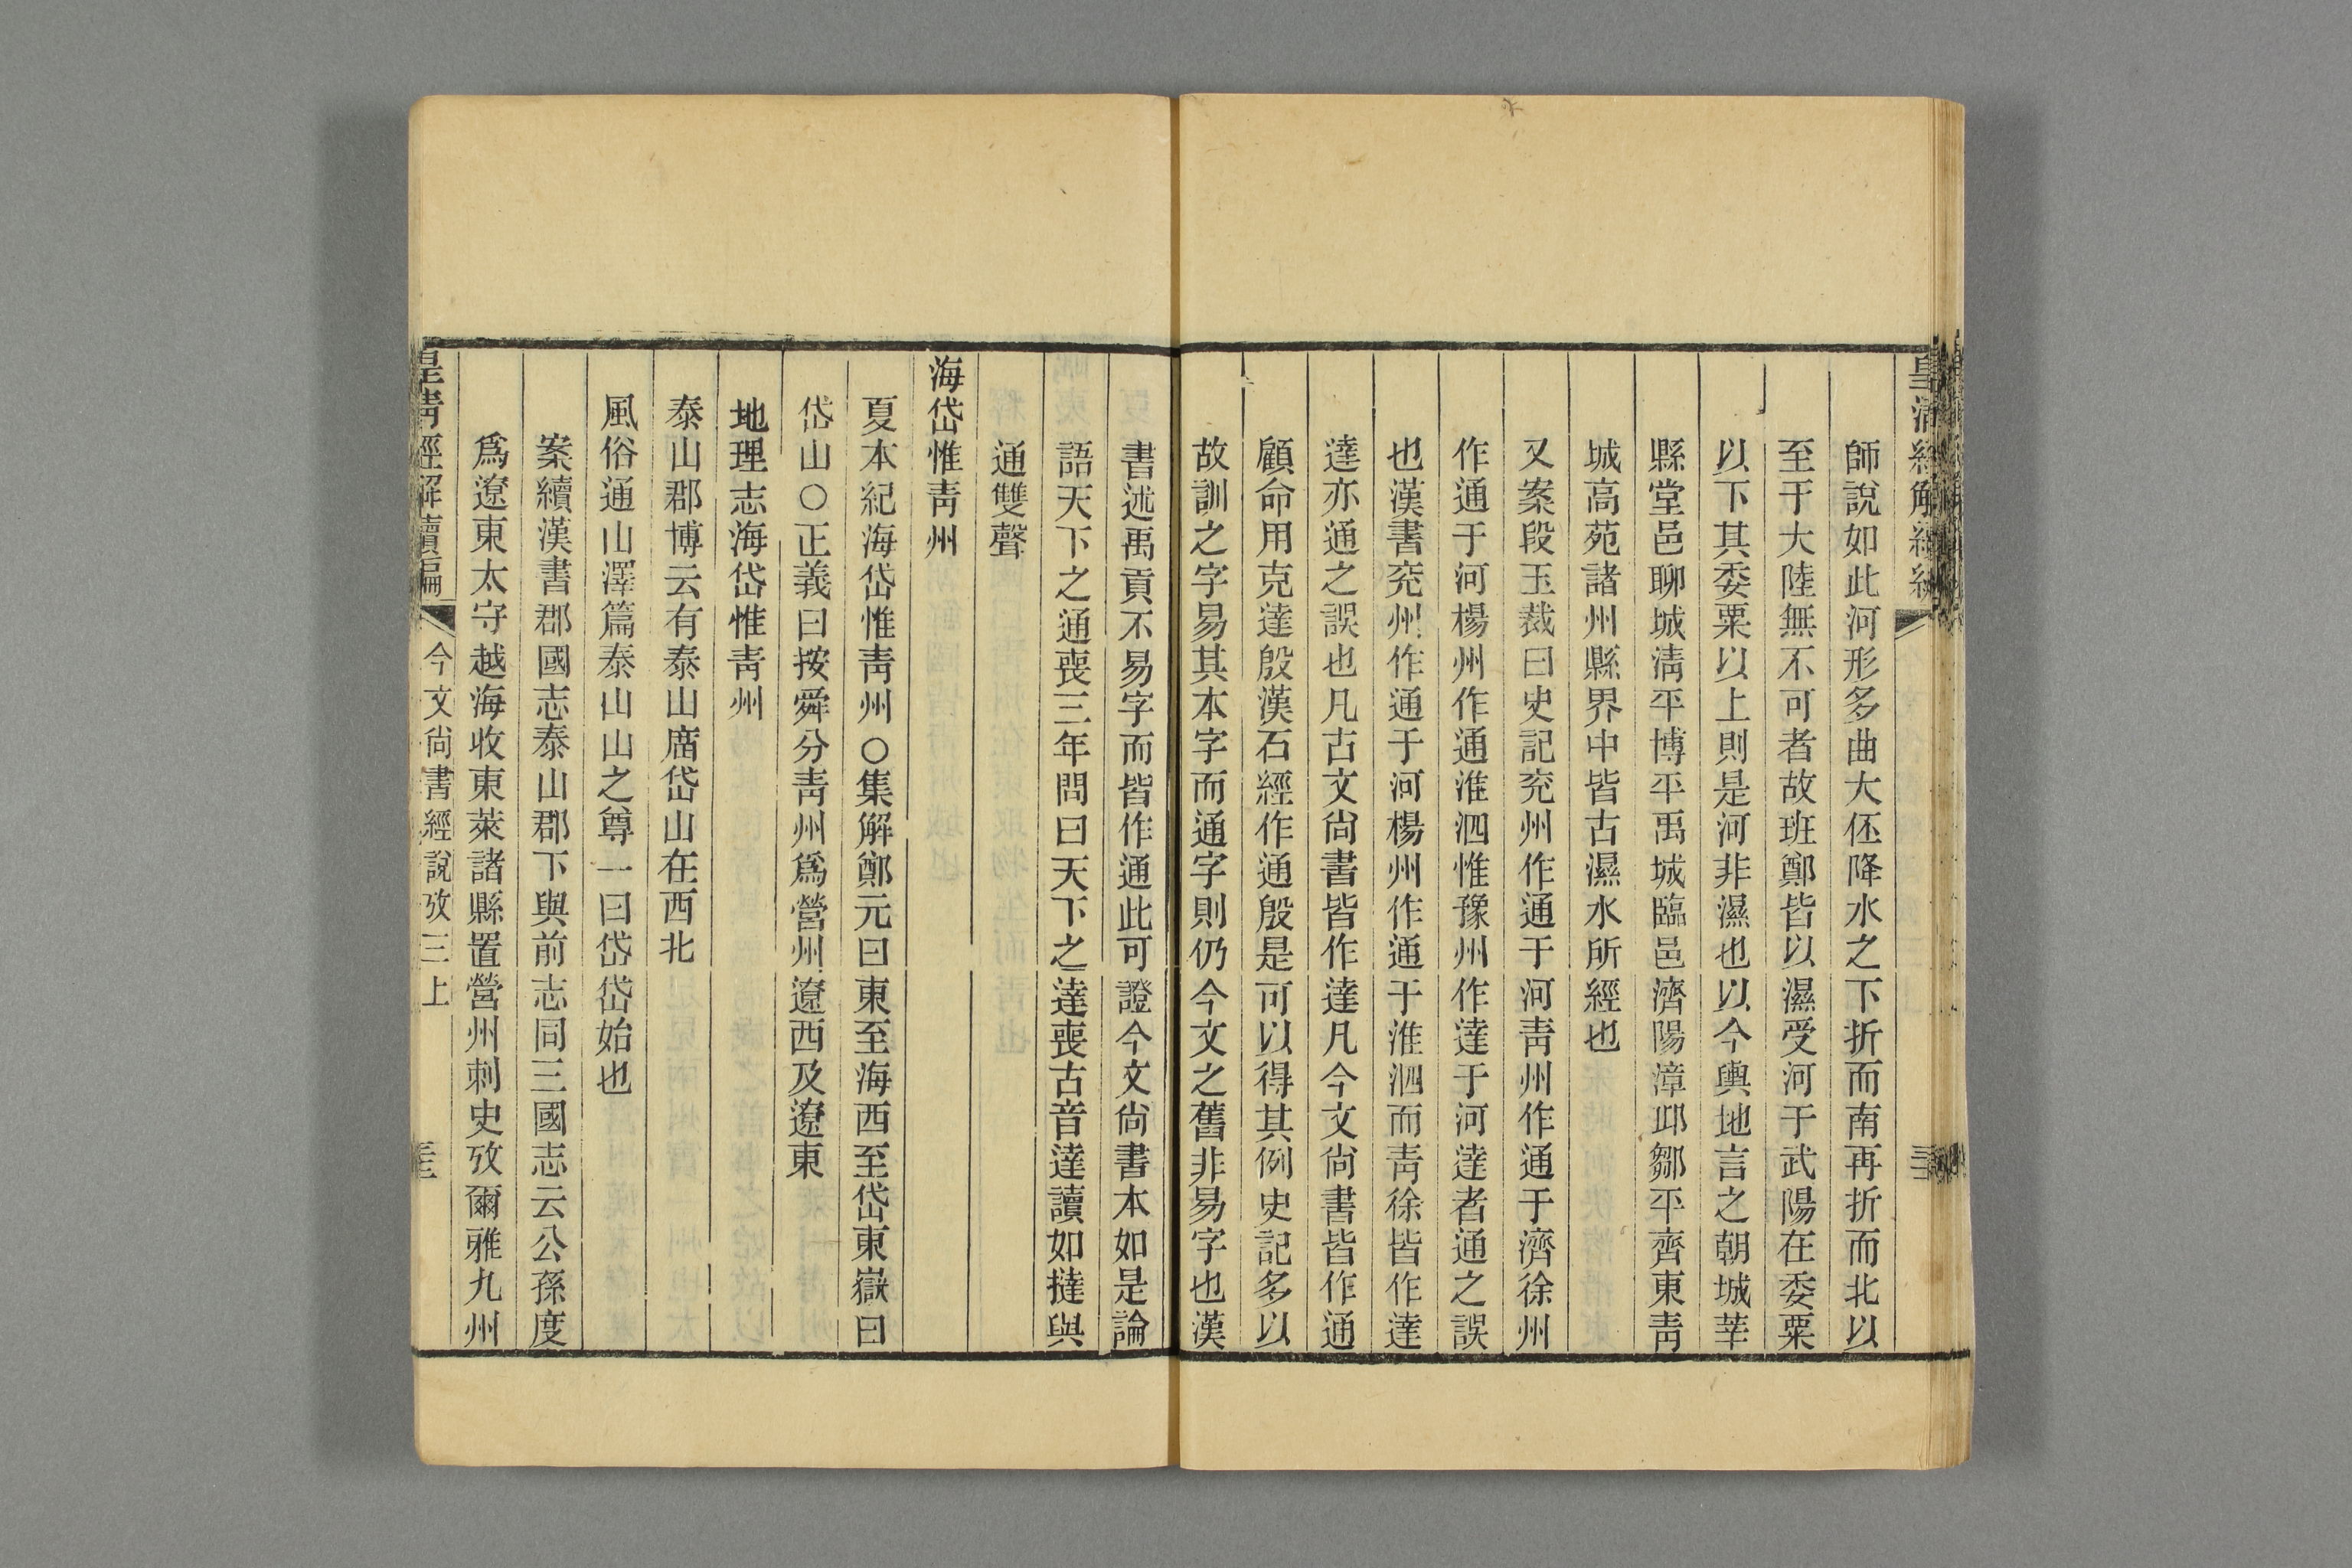 師說如此河形多曲大伾降水之下折而南再折而北以
至于大陸無不可者故班鄭皆以濕受河于武陽在委粟
以下其委粟以上則是河非濕也以今輿地言之朝城莘
縣堂邑聊城淸平博平禹城臨邑濟陽漳邱鄒平齊東靑
城高苑諸州縣界中皆古濕水所經也
又案段玉裁曰史記兖州作通于河靑州作通于濟徐州
作通于河楊州作通淮泗惟豫州作達于河達者通之誤
也漢書兖州作通于河楊州作通于淮泗而靑徐皆作達
達亦通之誤也凡古文尙書皆作達凡今文尙書皆作通
顧命用克達殷漢石經作通殷是可以得其例史記多以
故訓之字易其本字而通字則仍今文之舊非易字也漢
書述禹貢不易字而皆作通此可證今文尙書本如是論
語天下之通喪三年問曰天下之達喪古音達讀如撻與
通雙聲
海岱惟靑州
夏本紀海岱惟靑州○集解鄭元曰東至海西至岱東嶽曰
岱山○正義曰按舜分靑州爲營州遼西及遼東
地理志海岱惟靑州
泰山郡博云有泰山廟岱山在西北
風俗通山澤篇泰山山之尊一曰岱岱始也
案續漢書郡國志泰山郡下與前志同三國志云公孫度
爲遼東太守越海收東萊諸縣置營州刺史攷爾雅九州
皇淸經解續編 今文尙書經說攷三上